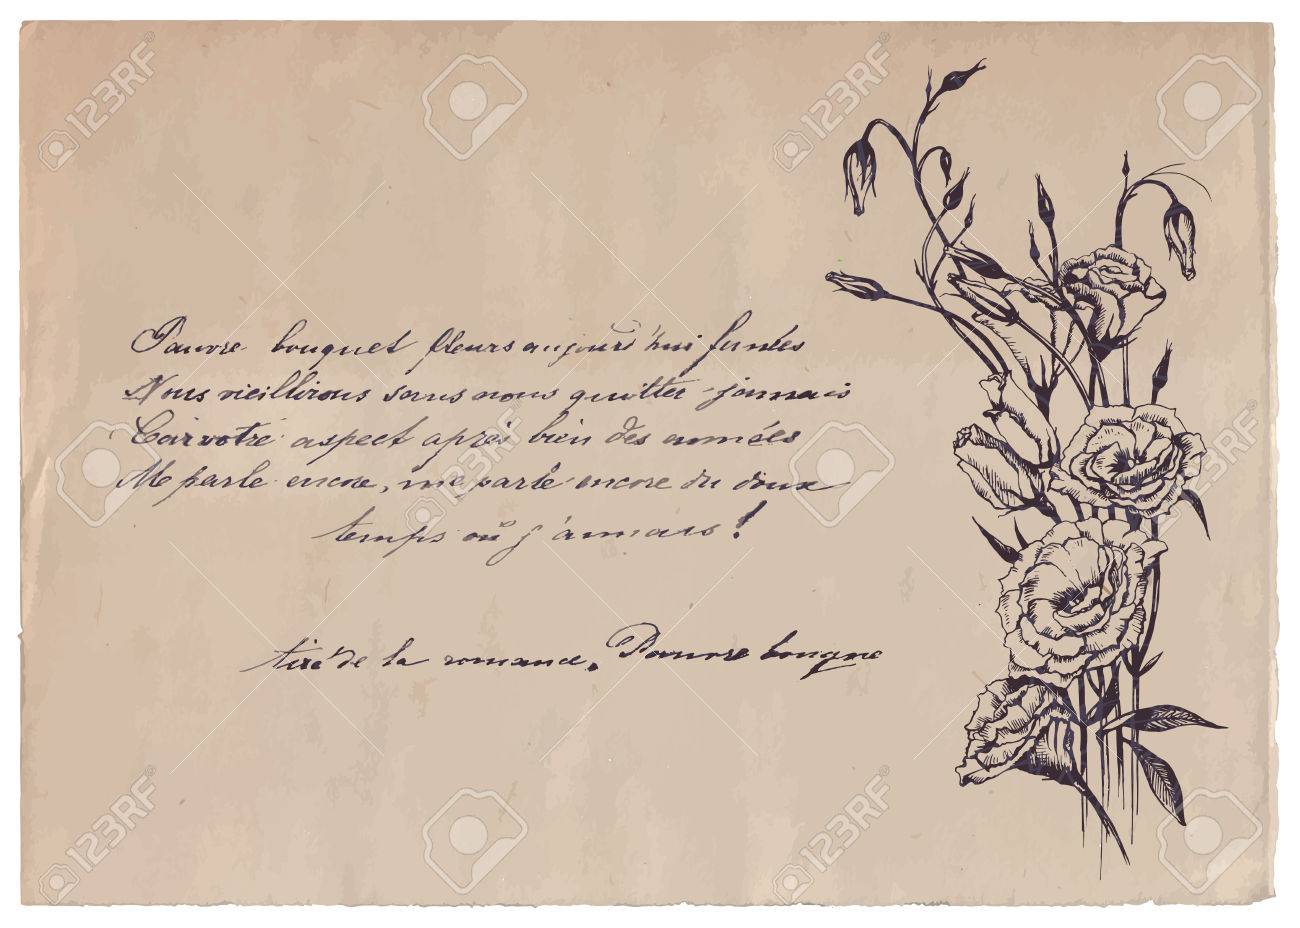 Pauvre bouquet fleurs aujourd'hui fanées
Nous vieillirons sans nous quitter jamais
Car votre aspect après bien des années
Me parle encore, me parle encore du doux
temps où j'aimais!
tiré de la romance, Pauvre bouque
123RF
123RF
123RF
123RF
123RF
123RF